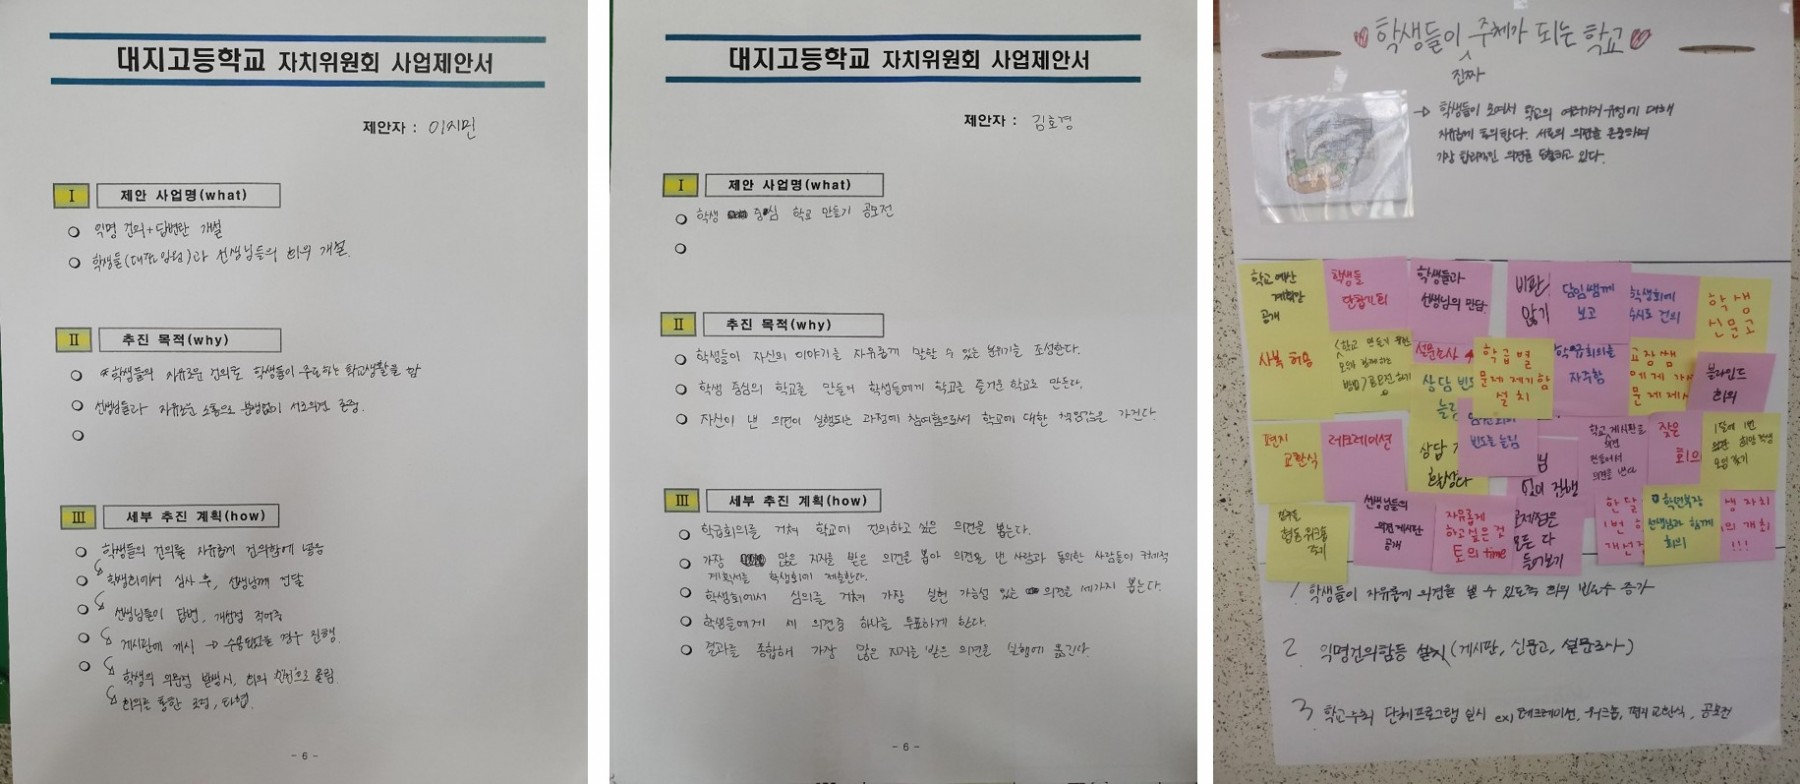 대지고등학교 자치위원회 사업제안서
제안자 : 이지민
Ⅰ 제안 사업명(what)
익명 건의+답변란 개설
학생들(대표임원)과 선생님들의 회의 개설.
Ⅱ 추진 목적(why)
*학생들의 자유로운 건의로 학생들이 주도하는 학교생활을 함
선생님들과 자유로운 소통으로 불만없이 서로의견 존중.
Ⅲ 세부 추진 계획(how)
학생들의 건의를 자유롭게 건의함에 넣음
학생회에서 심사 후, 선생님께 전달
선생님들이 답변, 개선점 적어줌
게시판에 게시 → 수용됐을 경우 진행.
학생의 의문점 발생시, 회의 안건으로 올림
회의를 통한 조정, 타협.
- 6 -
대지고등학교 자치위원회 사업제안서
제안자 : 김호경
Ⅰ 제안 사업명(what)
학생 중심 학교 만들기 공모전
Ⅱ 추진 목적(why)
학생들이 자신의 이야기를 자유롭게 말할 수 있는 분위기를 조성한다.
학생 중심의 학교를 만들어 학생들에게 학교를 즐거운 학교로 만든다.
자신이 낸 의견이 실행되는 과정에 참여함으로써 학교에 대한 책임감을 가진다.
Ⅲ 세부 추진 계획(how)
학급회의를 거쳐 학교에 건의하고 싶은 의견을 뽑는다.
가장 많은 지지를 받은 의견을 뽑아 의견을 낸 사람과 동의한 사람들이 구체적
계획서를 학생회에 제출한다.
학생회에서 심의를 거쳐 가장 실현 가능성 있는 의견을 세가지 뽑는다.
학생들에게 세 의견중 하나를 투표하게 한다.
결과를 종합해 가장 많은 지지를 받은 의견을 실행에 옮긴다.
- 6 -
학생들이 주체가 되는 학교
진짜
→ 학생들이 모여서 학교의 여러가지 규정에 대해
자유롭게 토의한다. 서로의 의견을 존중하며
가장 합리적인 의견을 도출하고 있다.
학교 예산
계획안
공개
학생들
단합기회
학생들과
선생님의 만담.
비판
않기
담임쌤께
보고
학생회에
수시로 건의
학생
신문고
사복 허용
설문조사
상담 빈도
학급별
문제 제기함
설치
학급회의를
자주함
교장쌤
에게 가서
문제제시
블라인드
회의
편지
교환식
레크레이션
빈도를 늘림
잦은
회의
1달에 1번
협동 워크숍
선생님들의
의견 게시판
공개
자유롭게
하고싶은 것
토의 time
문제점은
모든 다
들어보기
한 달
1번
학년부장
선생님과 함께
회의
1. 학생들이 자유롭게 의견을 낼 수 있도록 회의 빈도수 증가
2. 익명건의함등 설치 (게시판, 신문고, 설문조사)
3. 학교주최 단체프로그램 실시 ex) 레크레이션, 워크숍, 편지 교환식, 공모전